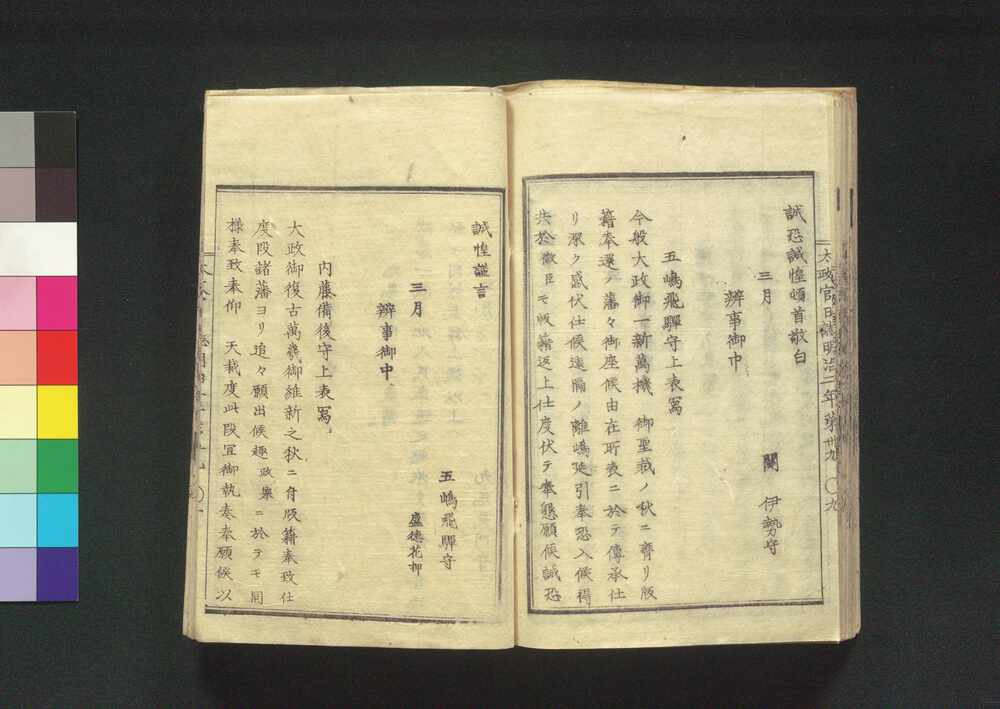 誠恐誠惶頓首敬白
三月　關　伊勢守
辨事御中
五嶋飛驒守上表寫
今般大政御一新萬機　御聖裁ノ秋ニ膺リ版
籍奉還ノ藩々御座候由在所表ニ於テ傳承仕
リ深ク感伏仕候遠隔ノ離嶋延引奉恐入候得
共於微臣モ版籍返上仕度伏テ奉懇願候誠恐
太政官日誌明治二年第卅九　〇九
誠惶謹言
五嶋飛驒守
三月　盛德花押
辨事御中
内藤備後守上表寫
大政御復古萬機御維新之秋ニ付版籍奉致仕
度段諸藩ヨリ追々願出候趣政舉ニ於テモ同
樣奉致奉仰　天裁度此段宜御執奏奉願候以